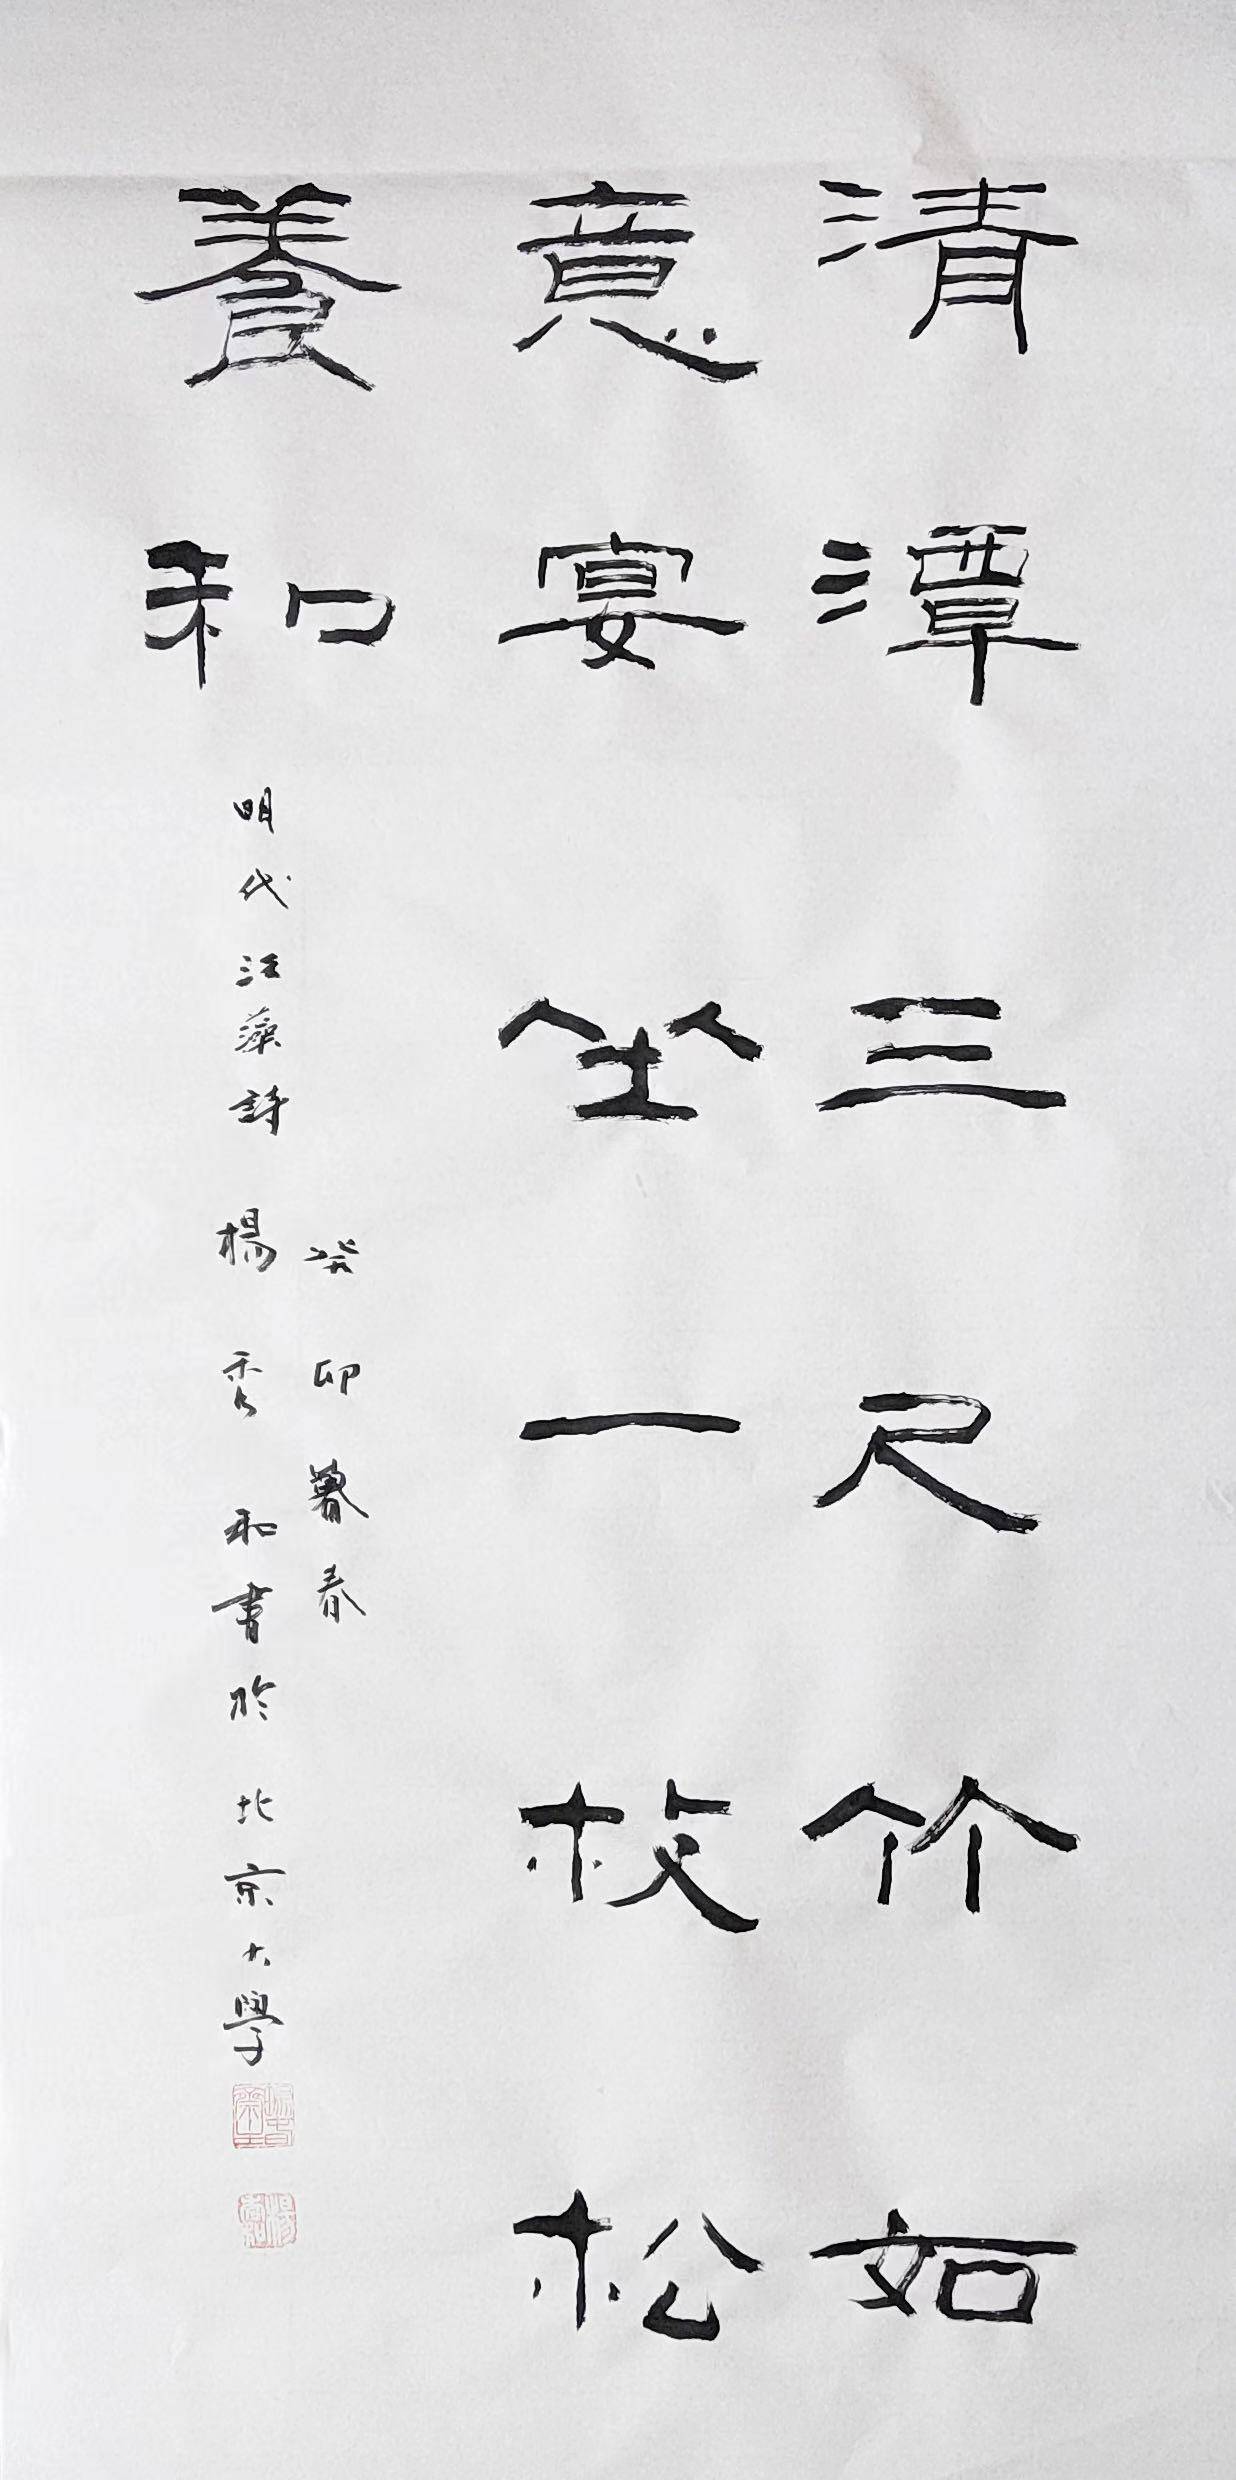 清潭三尺竹如
意宴坐一枝松
養和
癸卯暮春
明代汪藻詩楊秀和書於北京大學